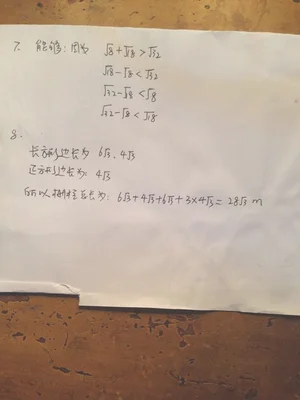 7. 能够:因为 √8+√18>√32
√18-√8<√32
√32-√18<√8
√32-√8<√18
8.
长方形边长为 6√3、4√3
正方形边长为: 4√3
所以 总长为: 6√3+4√3+6√3+3×4√3=28√3 m